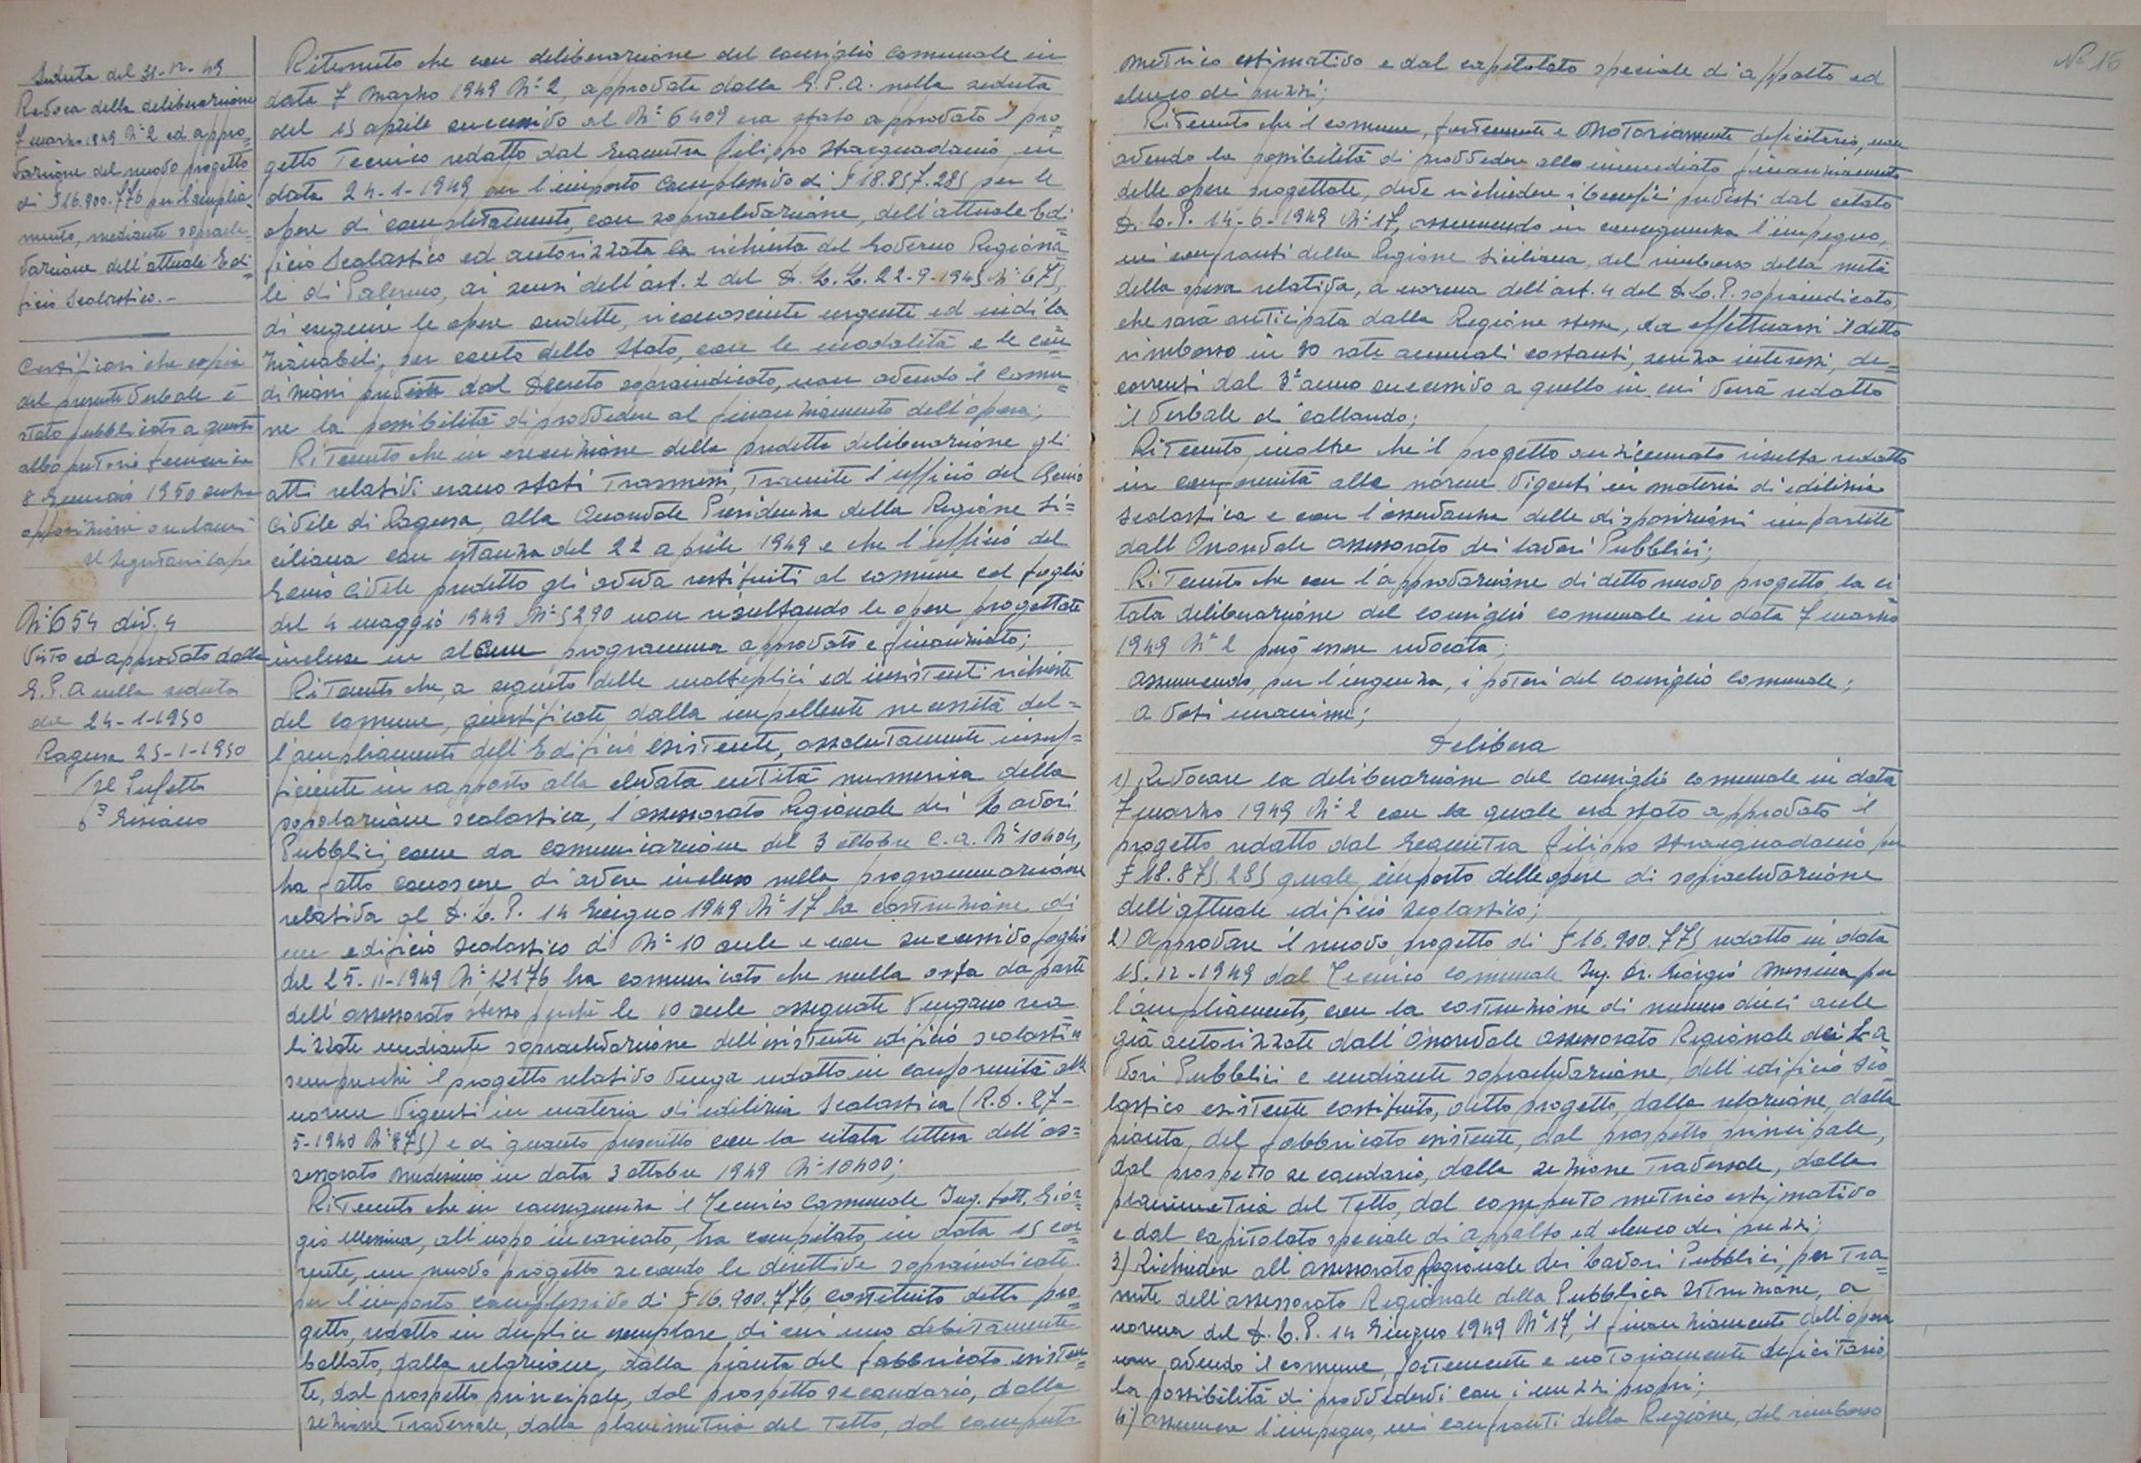 Seduta del 31-12-49
Revoca della deliberazione
7 marzo 1949 N° 2 ed appro=
vazione del nuovo progetto
di £ 16.900.776 per l'amplia=
mento, mediante sopraele=
vazione dell'attuale Edi=
ficio Scolastico.-
Certificasi che copia
del presente verbale è
stato pubblicato a questo
albo pretorio domenica
8 Gennaio 1950 senza
opposizioni o reclami
Il Segretario Capo
N° 654 div. 4
Visto ed approvato dalla
G.P.A nella seduta
del 24-1-1950
Ragusa 25-1-1950
Il Prefetto
Ritenuto che con deliberazione del consiglio comunale in
data 7 marzo 1949 N° 2, approvata dalla G.P.A. nella seduta
del 15 aprile successivo al N° 6409 era stato approvato il pro=
getto tecnico redatto dal Geometra Filippo Stracquadanio in
data 24-1-1949, per l'importo complessivo di £ 18.857.285 per le
opere di completamento, con sopraelevazione, dell'attuale Edi=
ficio Scolastico ed autorizzata la richiesta del Governo Regiona=
le di Palermo, ai sensi dell'art. 2 del D.L.L. 22-9-1945 N° 675,
di eseguire le opere suddette, riconosciute urgenti ed indila=
zionabili, per conto dello Stato, con le modalità e le con=
dizioni previste dal Decreto sopraindicato, non avendo il comu=
ne la possibilità di provvedere al finanziamento dell'opera;
Ritenuto che in esecuzione della predetta deliberazione gli
atti relativi erano stati trasmessi, tramite l'ufficio del Genio
Civile di Ragusa, alla Onorevole Presidenza della Regione Si=
ciliana con istanza del 22 aprile 1949 e che l'ufficio del
Genio Civile predetto gli aveva restituiti al comune col foglio
del 4 maggio 1949 N° 5290 non risultando le opere progettate
incluse in alcun programma approvato e finanziato;
Ritenuto che, a seguito delle molteplici ed insistenti richieste
del comune, giustificate dalla impellente necessità del=
l'ampliamento dell'Edificio esistente, assolutamente insuf=
ficiente in rapporto alla elevata entità numerica della
popolazione scolastica, l'assessorato Regionale dei Lavori
Pubblici, come da comunicazione del 3 ottobre c.a. N° 10404,
ha fatto conoscere di avere incluso nella programmazione
relativa al D.L.P. 14 Giugno 1949 N° 17 la costruzione di
un edificio scolastico di N° 10 aule e con successivo foglio
del 25-11-1949 N° 12176 ha comunicato che nulla osta da parte
dell'assessorato stesso perchè le 10 aule assegnate vengano rea
lizzate mediante sopraelevazione dell'esistente edificio scolastico
sempreché il progetto relativo venga redatto in conformità alle
norme vigenti in materia di edilizia scolastica (R.D. 27-
5-1940 N° 875) e di quanto prescritto con la citata lettera dell'as=
sessorato medesimo in data 3 ottobre 1949 N° 10400;
Ritenuto che in conseguenza il Tecnico Comunale Ing. Dott. Gior=
gio Messina, all'uopo incaricato, ha compilato, in data 15 cor=
rente, un nuovo progetto secondo le direttive sopraindicate
per l'importo complessivo di £ 16.900.776, costituito detto pro=
getto, redatto in duplice esemplare, di cui uno debitamente
bollato, dalla relazione, dalla pianta del fabbricato esisten=
te, dal prospetto principale, dal prospetto secondario, dalla
sezione trasversale, dalla planimetria del tetto, dal computo
N° 16
metrico estimativo e dal capitolato speciale di appalto ed
elenco dei prezzi;
Ritenuto che il comune, fortemente e notoriamente deficitario, non
avendo la possibilità di provvedere allo immediato finanziamento
delle opere progettate, deve richiedere i benefici previsti dal citato
D.L.P. 14-6-1949 N° 17, assumendo in conseguenza l'impegno,
nei confronti della Regione Siciliana, del rimborso della metà
della spesa relativa, a norma dell'art. 4 del D.L.P. sopraindicato,
che sarà anticipata dalla Regione stessa, da effettuarsi il detto
rimborso in 30 rate annuali costanti, senza interessi, de=
correnti dal 3° anno successivo a quello in cui verrà redatto
il verbale di collaudo;
Ritenuto, inoltre che il progetto anzicennato risulta redatto
in conformità alle norme vigenti in materia di edilizia
scolastica e con l'osservanza delle disposizioni impartite
dall'Onorevole assessorato dei Lavori Pubblici;
Ritenuto che con l'approvazione di detto nuovo progetto la ci=
tata deliberazione del consiglio comunale in data 7 marzo
1949 N° 2 può essere revocata;
Assumendo, per l'urgenza, i poteri del consiglio comunale;
a voti unanimi;
Delibera
1) Revocare la deliberazione del consiglio comunale in data
7 marzo 1949 N° 2 con la quale era stato approvato il
progetto redatto dal Geometra Filippo Stracquadanio per
£ 18.875.285 quale importo delle opere di sopraelevazione
dell'attuale edificio scolastico;
2) Approvare il nuovo progetto di £ 16.900.775 redatto in data
15-12-1949 dal Tecnico comunale Ing. Dr. Giorgio Messina per
l'ampliamento, con la costruzione di numero dieci aule
già autorizzate dall'Onorevole Assessorato Regionale dei La
vori Pubblici e mediante sopraelevazione, dell'edificio Sco=
lastico esistente costituito, detto progetto, dalla relazione, dalla
pianta, del fabbricato esistente, dal prospetto principale,
dal prospetto secondario, dalla sezione trasversale, dalla
planimetria del tetto, dal computo metrico estimativo
e dal capitolato speciale di appalto ed elenco dei prezzi;
3) Richiedere all'assessorato Regionale dei Lavori Pubblici, per tra=
mite dell'assessorato Regionale della Pubblica Istruzione, a
norma del D.L.P. 14 Giugno 1949 N° 17, il finanziamento dell'opera
non avendo il comune, fortemente e notoriamente deficitario,
la possibilità di provvedervi con i mezzi propri;
4) Assumere l'impegno, nei confronti della Regione, del rimborso